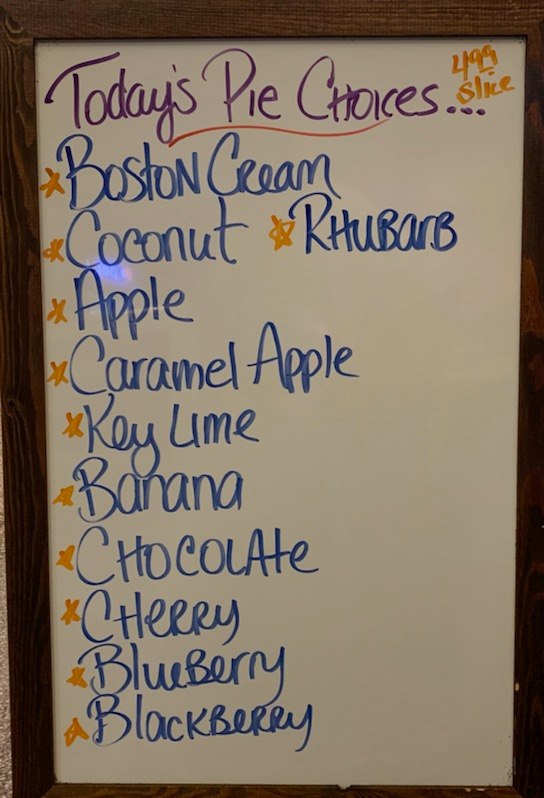 Today's Pie Choices... 499 slice
Boston Cream
Coconut Rhubarb
Apple
Caramel Apple
Key Lime
Banana
Chocolate
Cherry
Blueberry
Blackberry